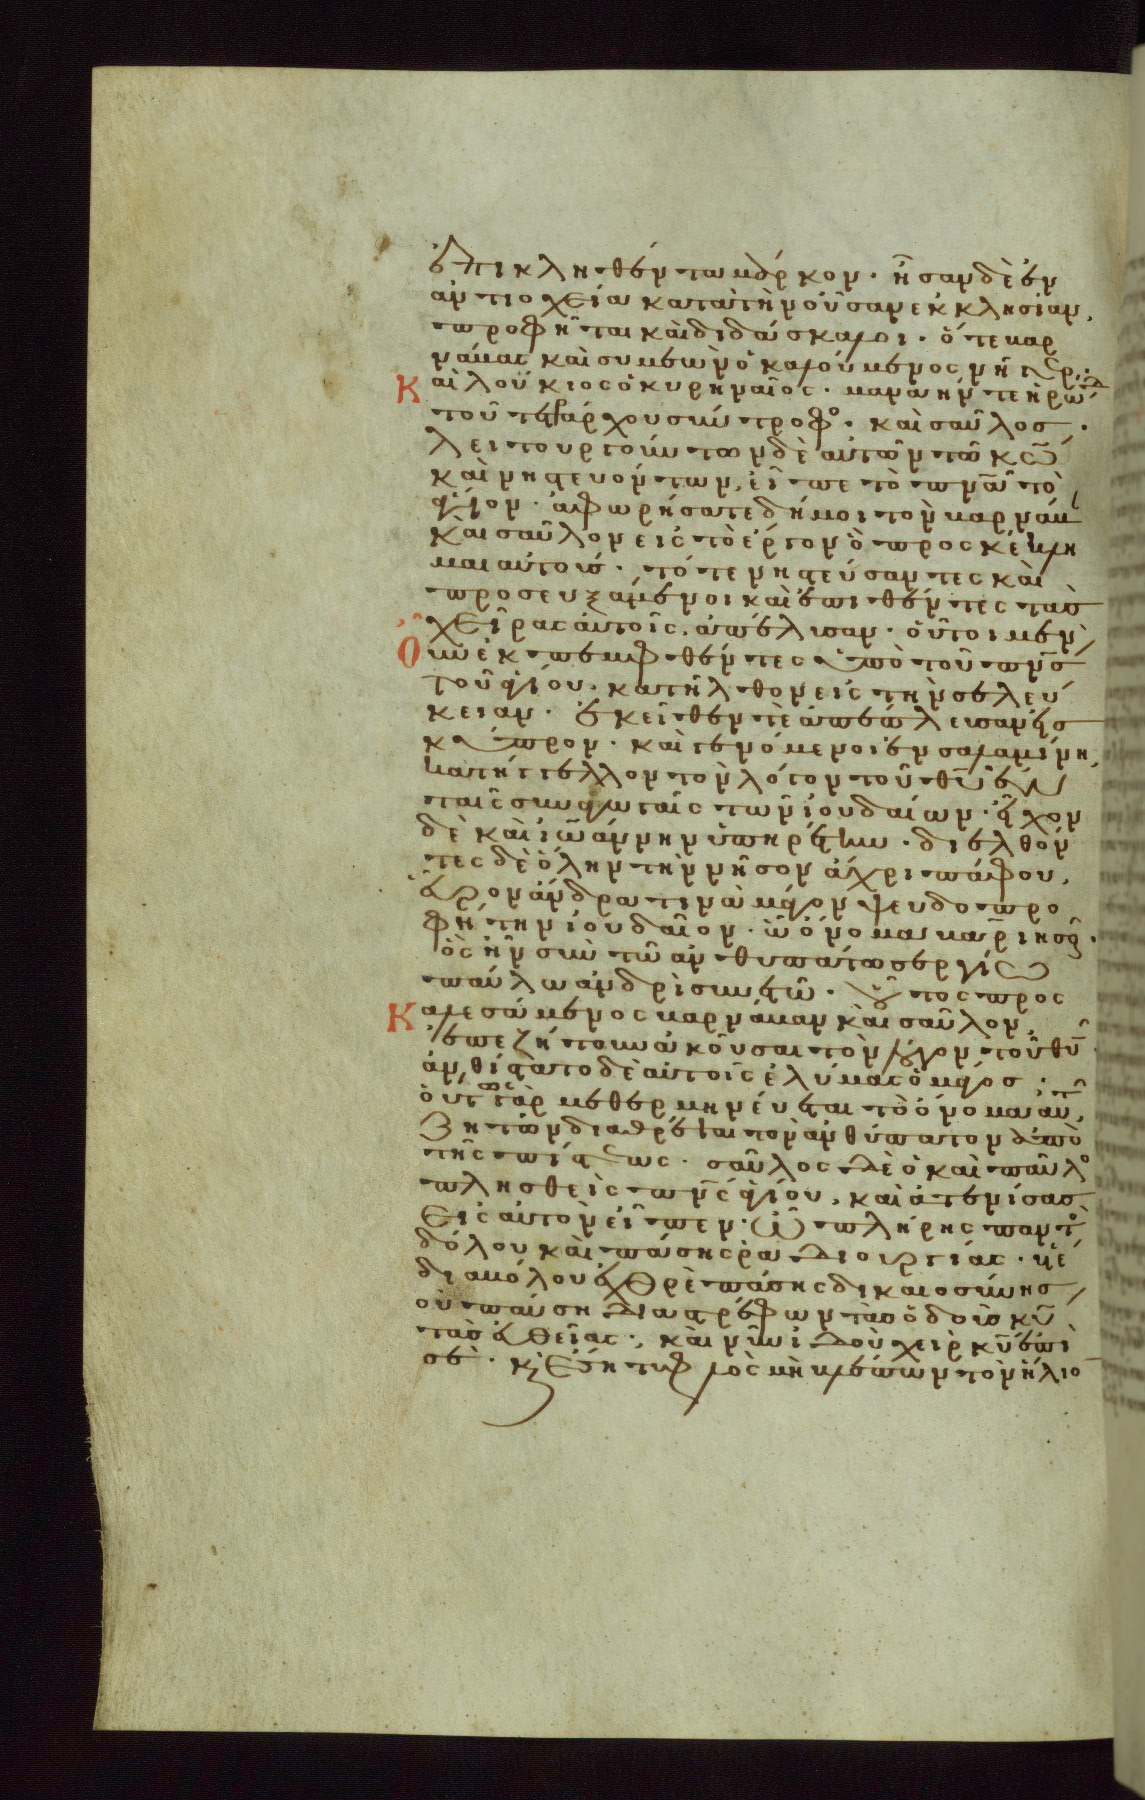 ἐπικληθέντα μάρκον· ἦσαν δὲ ἐν
ἀντιοχεία κατὰ τὴν οὖσαν ἐκκλησίαν,
προφῆται καὶ διδάσκαλοι· ὅ τε βαρ
νάβας καὶ συμεὼν ὁ καλούμενος νήγερ·
Καὶ λούκιος ὁ κυρηναῖος· μαναήν τε ἡρώδ
τοῦ τετράρχου σύντροφο· καὶ σαῦλος·
λειτουργούντων δὲ αὐτῶν τῶ κω
καὶ νηστευόντων, εἶπε τὸ πνα τὸ
ἅγιον· ἀφωρήσατε δή μοι τὸν βαρνάβ
καὶ σαῦλον εἰς τὸ ἔργον ὃ προσκέκλη
μαι αὐτούς· τότε νηστεύσαντες καὶ
προσευξάμενοι καὶ ἐπιθέντες τὰς
χεῖρας αὐτοῖς, ἀπέλυσαν· οὗτοι μὲν
Οὖν ἐκπεμφθέντες ὑπὸ τοῦ πνς
τοῦ ἁγίου, κατῆλθον εἰς τὴν σελεύ
κειαν· ἐκεῖθέν τε ἀπέπλευσαν εἰς
κύπρον· καὶ γενόμενοι ἐν σαλαμίνη,
κατήγγελλον τὸν λόγον τοῦ θυ ἐν
ταῖς συναγωγαῖς τῶν ἰουδαίων· εἶχον
δὲ καὶ ἰωάννην ὑπηρέτην· διελθόν
τες δὲ ὅλην τὴν νῆσον ἄχρι πάφου,
εὗρον ἄνδρα τινὰ μάγον ψευδοπρο
φήτην ἰουδαῖον· ὧ ὄνομα βαριησοῦ·
ὃς ἦν σὺν τῶ ἀνθυπάτω σεργίω
παύλω ἀνδρὶ συνετῶ· οὗτος προς
Καλεσάμενος βαρνάβαν καὶ σαῦλον,
ἐπεζήτουν ἀκοῦσαι τὸν λόγον τοῦ θυ·
ἀνθίστατο δὲ αὐτοῖς ἐλύμας ὁ μάγος·
οὕτως γὰρ μεθερμηνεύεται τὸ ὄνομα αὐτοῦ,
ζητῶν διαστρέψαι τὸν ἀνθύπατον ἀπὸ
τῆς πίστεως· σαῦλος δὲ ὁ καὶ παῦλο
πλησθεὶς πνς ἁγίου, καὶ ἀτενίσας
εἰς αὐτὸν εἶπεν· ὦ πλήρης παντὸ
δόλου καὶ πάσης ραδιουργίας· υἱὲ
διαβόλου ἐχθρὲ πάσης δικαιοσύνης
οὐ παύση διαστρέφων τὰς ὁδοὺς κυ
τὰς εὐθείας·, καὶ νῦν ἰδοὺ χεὶρ κυ ἐπὶ
σὲ· καὶ ἔση τυφλὸς μὴ βλέπων τὸν ἥλιο